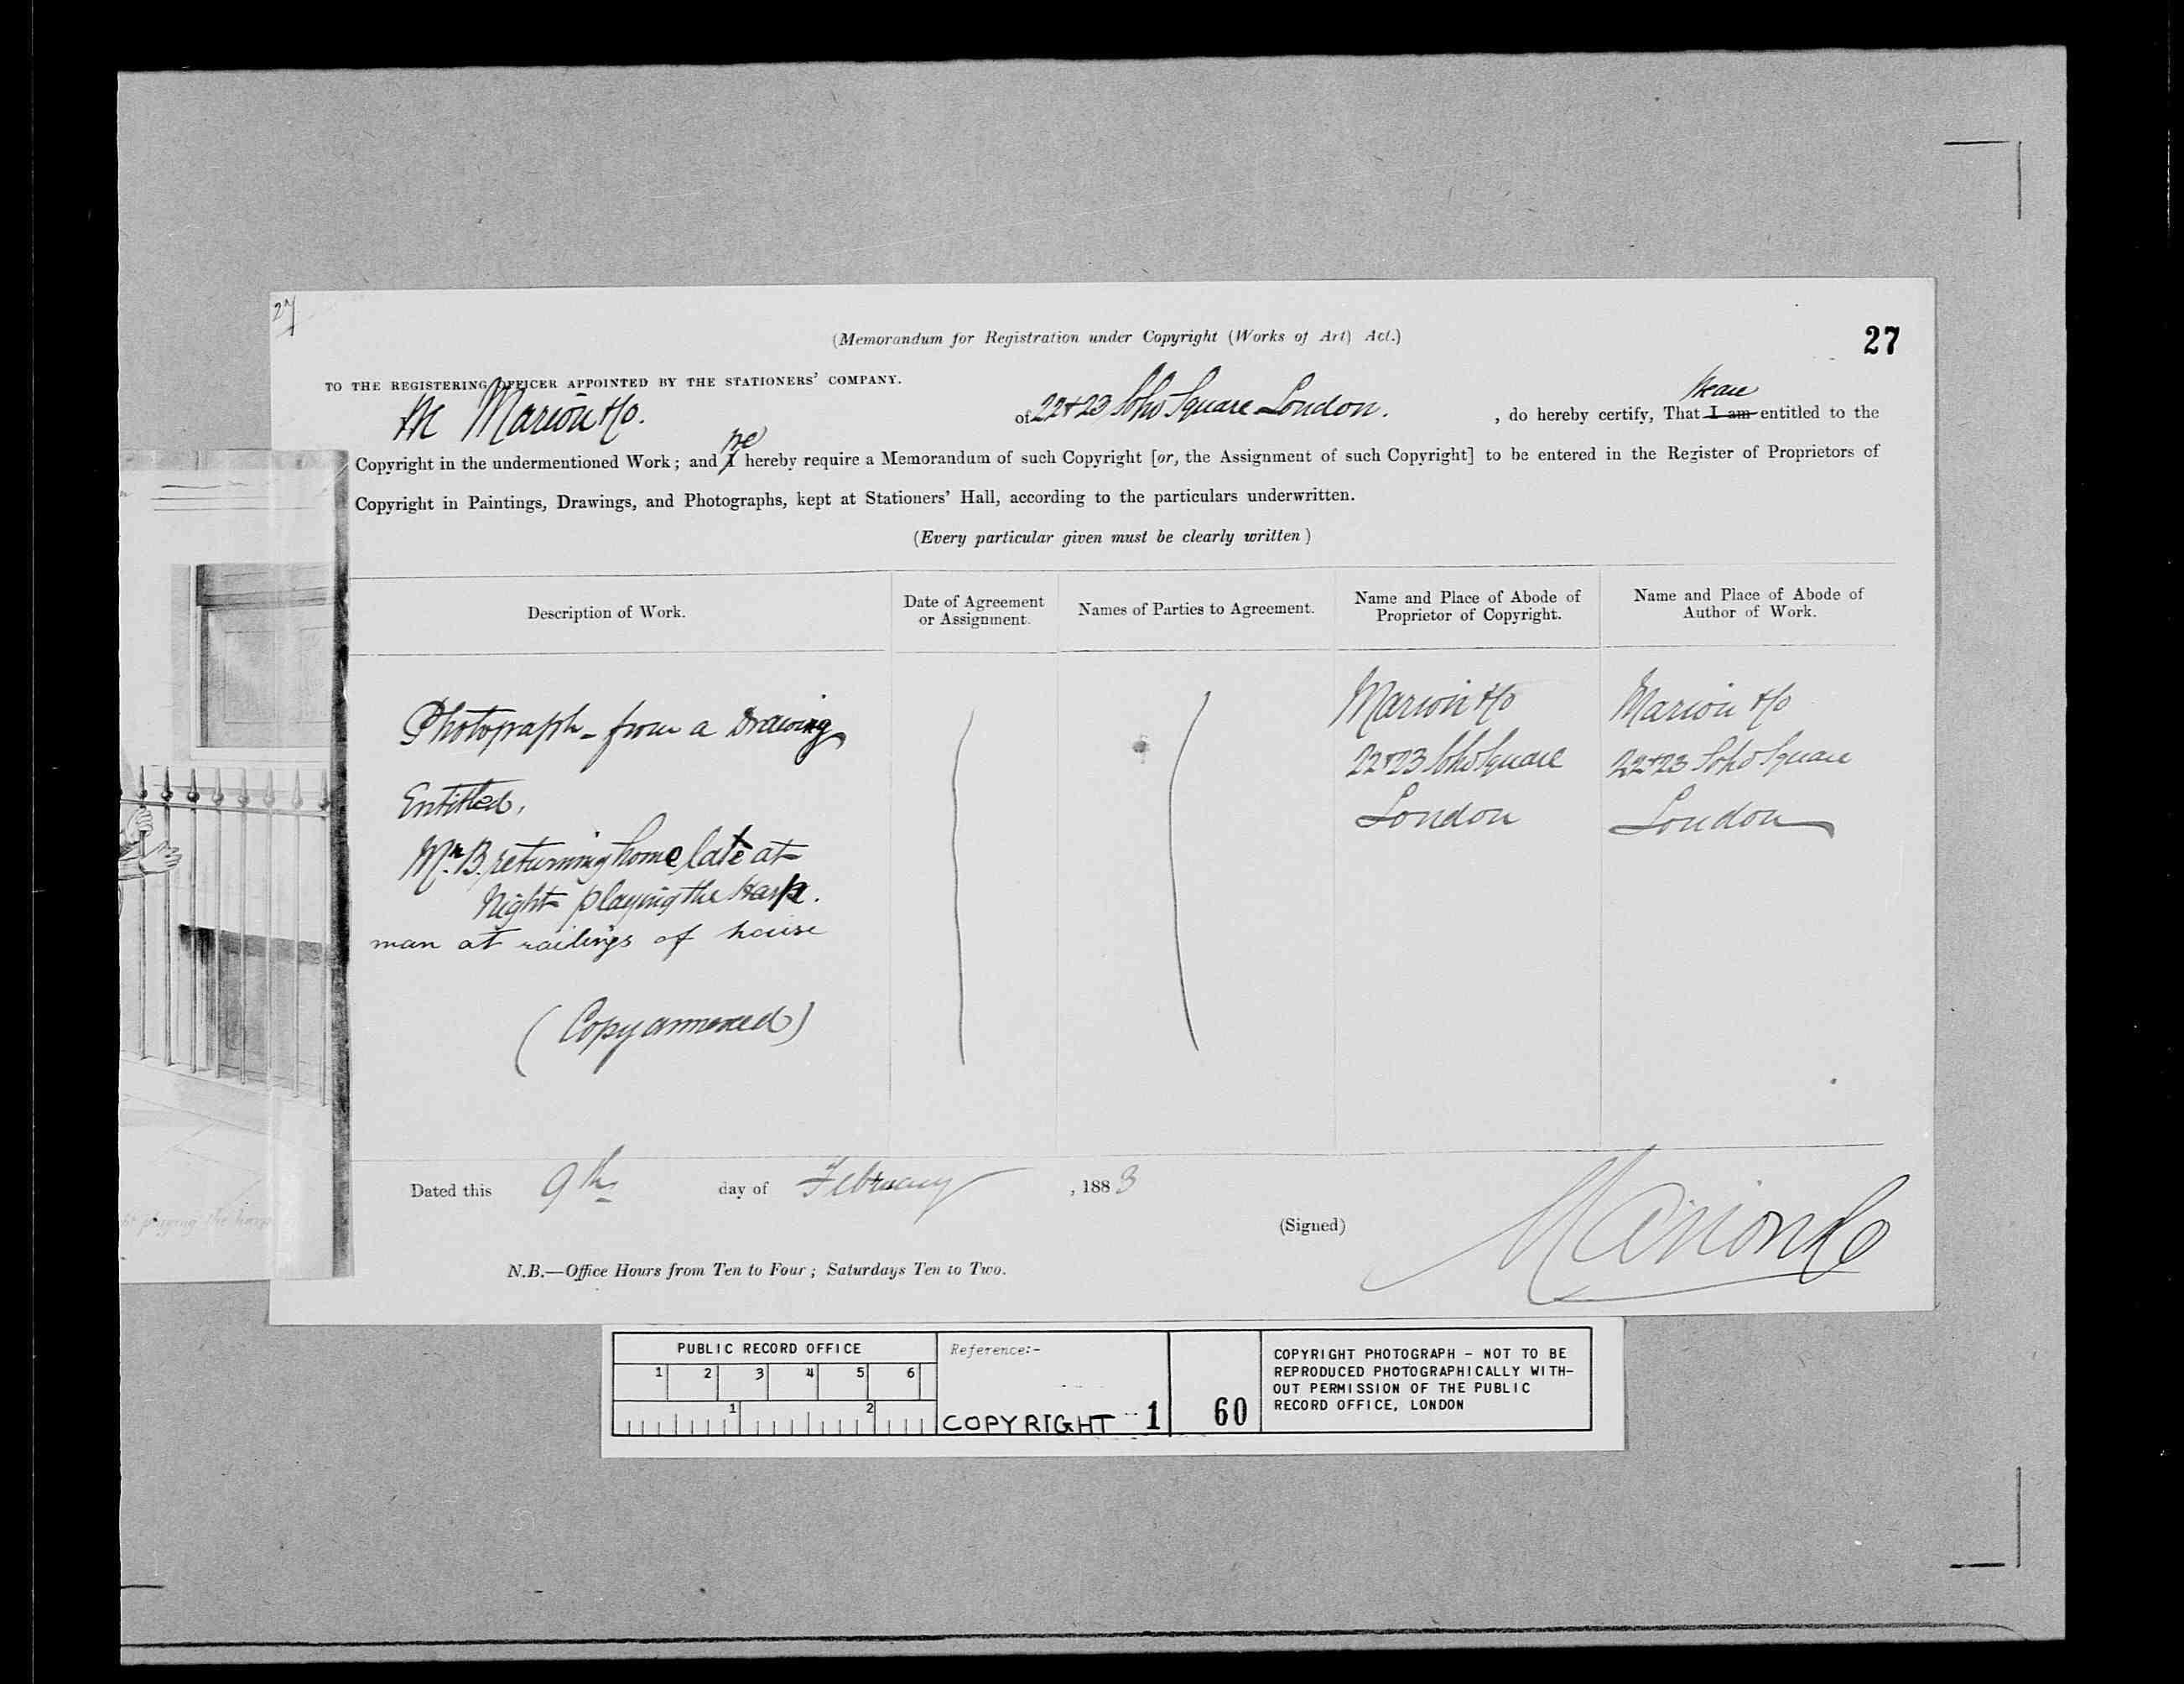 27
27
(Memorandum for Registration under Copyright (Works of Art) Act.)
TO THE REGISTERING OFFICER APPOINTED BY THE STATIONERS' COMPANY.
We Marion & Co. of 22 & 23 Soho Square London. , do hereby certify, That I am We are entitled to the
Copyright in the undermentioned Work; and I We hereby require a Memorandum of such Copyright [or, the Assignment of such Copyright] to be entered in the Register of Proprietors of
Copyright in Paintings, Drawings, and Photographs, kept at Stationers' Hall, according to the particulars underwritten.
(Every particular given must be clearly written)
Description of Work.
Date of Agreement
or Assignment.
Names of Parties to Agreement.
Name and Place of Abode of
Proprietor of Copyright.
Name and Place of Abode of
Author of Work.
Photograph - from a Drawing
Entitled,
Mr. B. returning home late at
Night playing the Harp.
man at railings of house
(Copy annexed)
Marion & Co
22 & 23 Soho Square
London
Marion & Co
22 & 23 Soho Square
London
Dated this 9th day of February , 1883
(Signed) Marion & Co
N.B.—Office Hours from Ten to Four; Saturdays Ten to Two.
playing the harp
PUBLIC RECORD OFFICE
1 2 3 4 5 6
1 2
Reference:-
COPYRIGHT 1 60
COPYRIGHT PHOTOGRAPH - NOT TO BE
REPRODUCED PHOTOGRAPHICALLY WITH-
OUT PERMISSION OF THE PUBLIC
RECORD OFFICE, LONDON